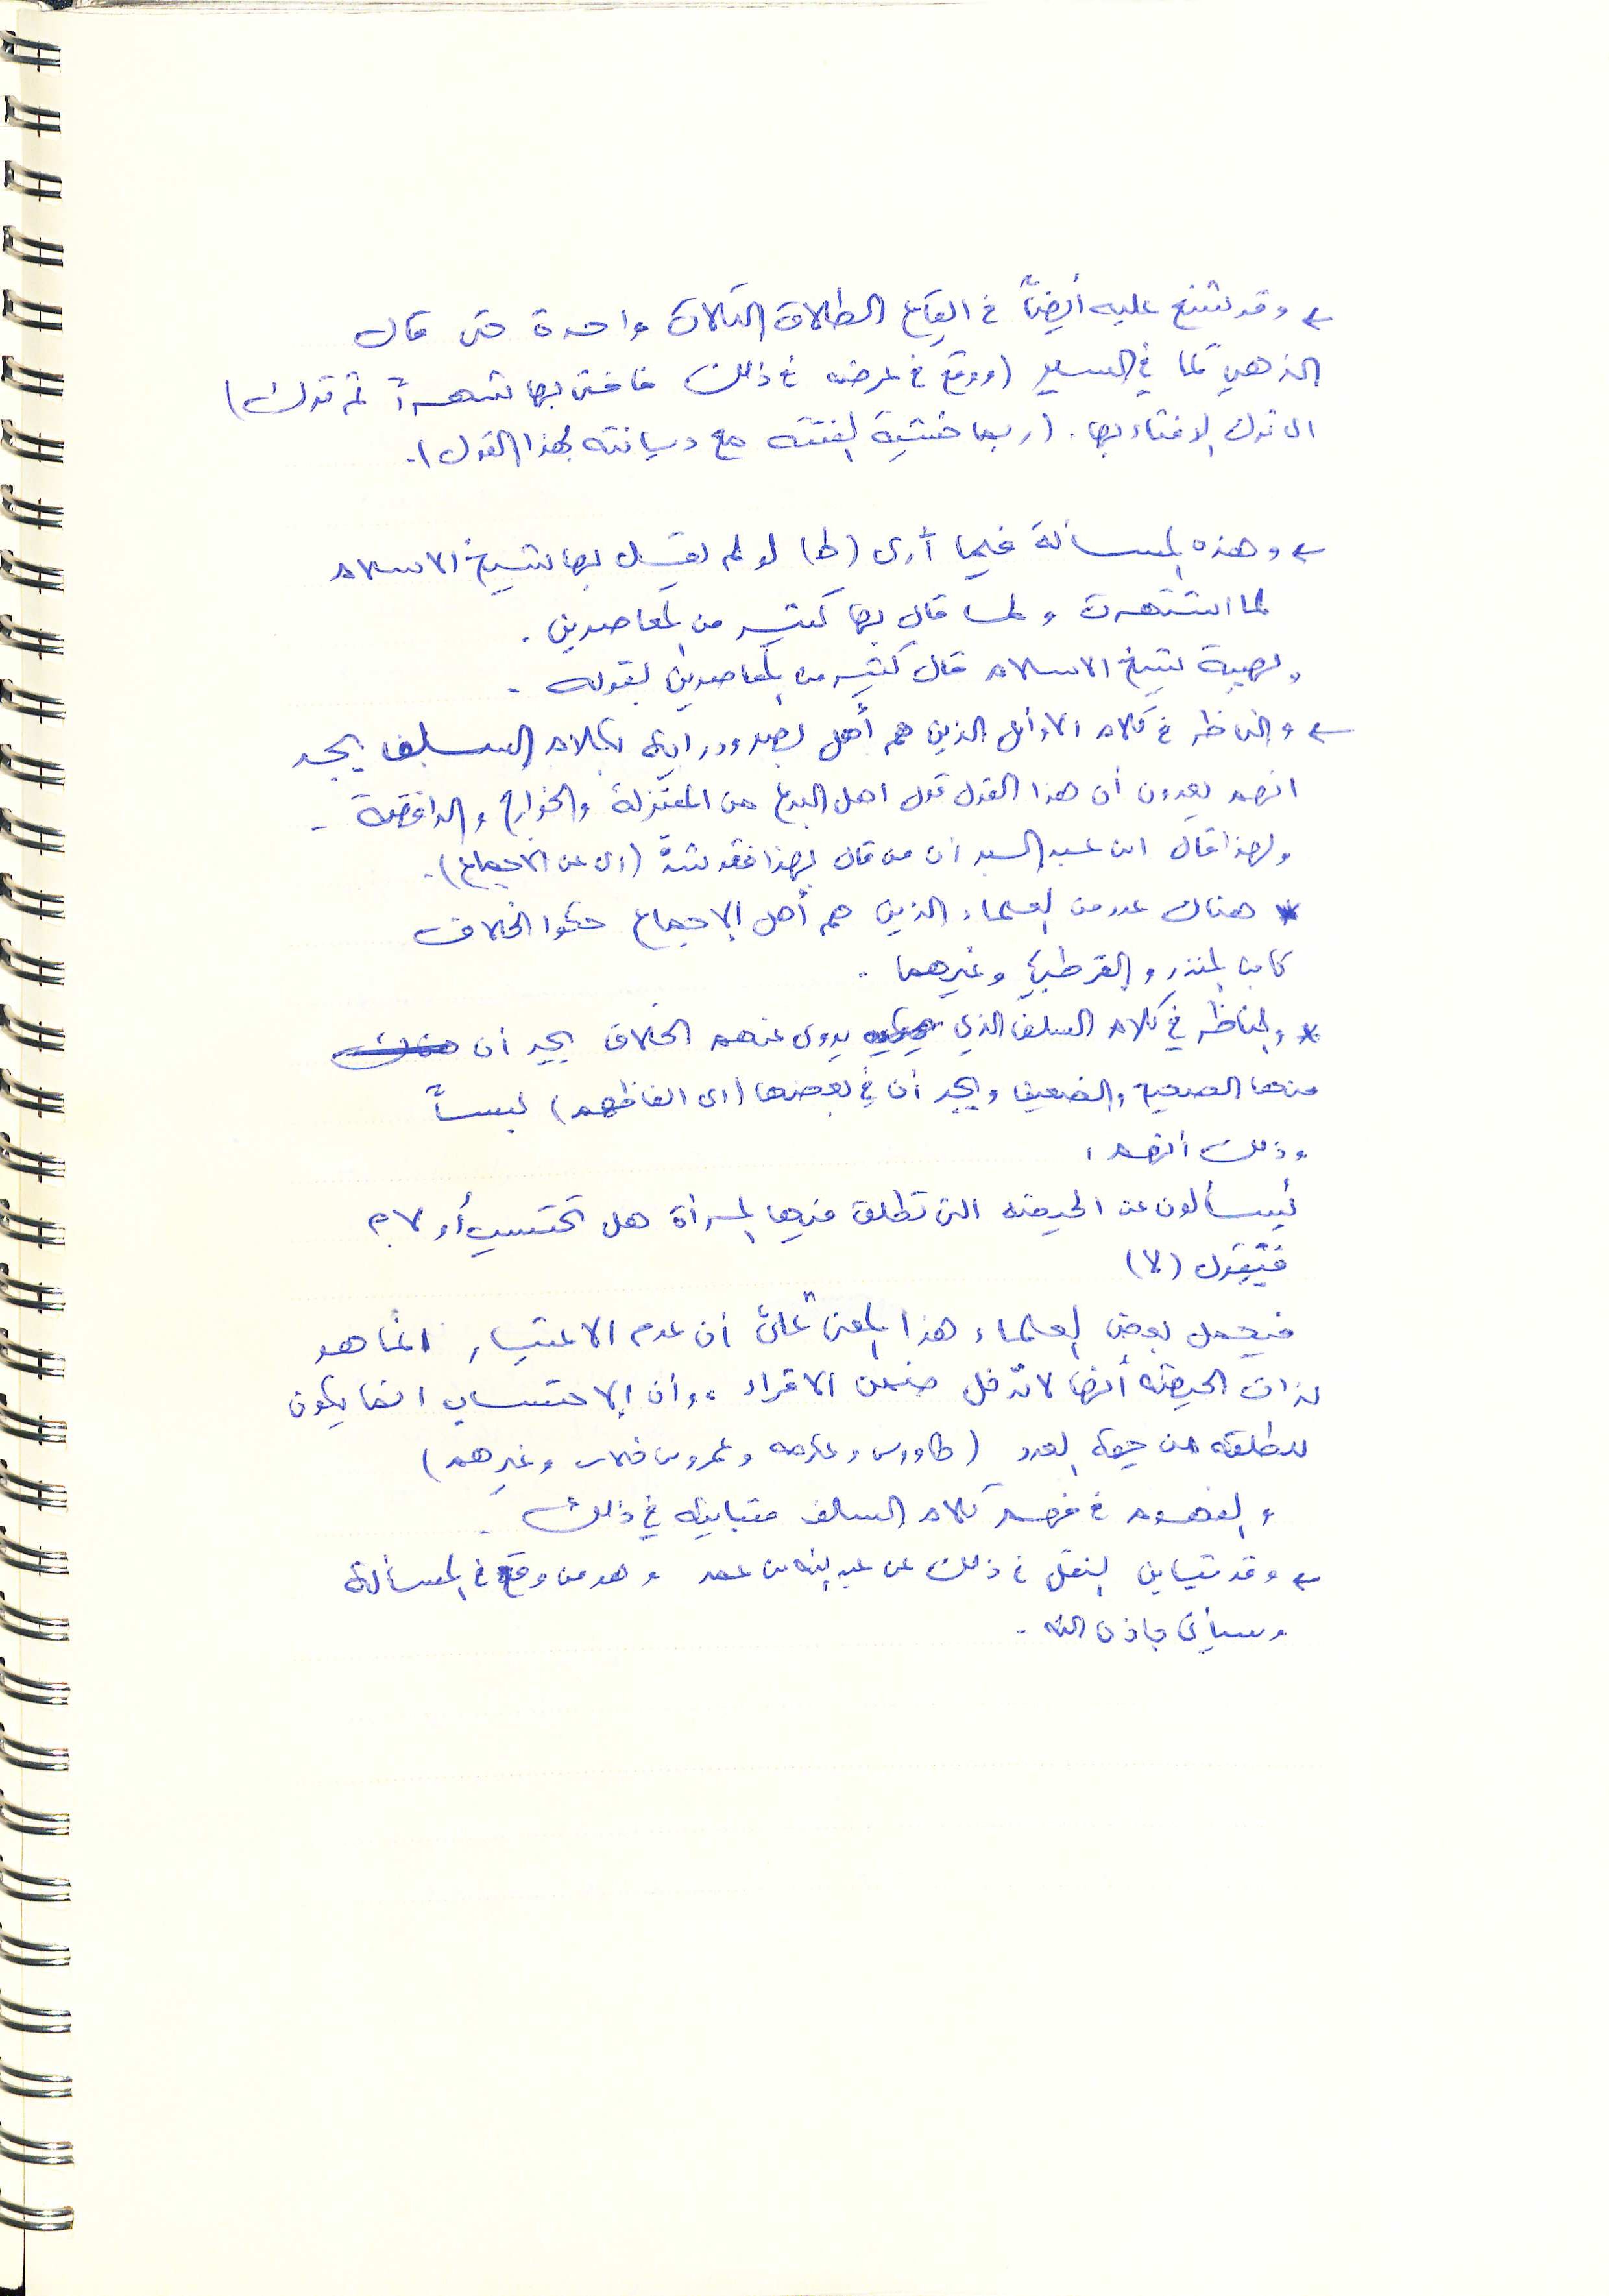 ← وقد شنع عليه أيضاً في ايقاع الطلاق الثلاث واحدة حتى قال
الذهبي كما في السير (ووقع في عرضه في ذلك فافتى بها شهراً ثم ترك)
اى ترك الافتاء بها. (ربما خشية الفتنة مع ديانته بهذا القول).
← وهذه المسألة فيما أرى (ط) لو لم يقل بها شيخ الاسلام
لما اشتهرت ولما قال بها كثير من المعاصرين.
ولهيبة شيخ الاسلام قال كثير من المعاصرين بقوله.
← والناظر في كلام الأوائل الذين هم أهل بصر ودراية بكلام السلف يجد
انهم يعدون أن هذا القول قول اهل البدع من المعتزلة والخوارج والرافضة.
ولهذا قال ابن عبد البر ان من قال بهذا فقد شذّ (اى عن الاجماع).
* هناك عدد من العلماء الذين هم أهل الاجماع حكوا الخلاف
كابن المنذر والقرطبي وغيرهما.
* والناظر في كلام السلف الذي يروى عنهم الخلاف يجد أن هناك
منها الصحيح والضعيف ويجد أن في بعضها (اى الفاظهم) لبساً
وذلك انهم:
يُسألون عن الحيضة التى تطلق فيها المرأة هل تحتسب أو لا؟
فيقول (لا)
فيحمل بعض العلماء هذا المعنى على أن عدم الاعتبار انما هو
لذات الحيضة أنها لا تدخل ضمن الاقراء، وأن الاحتساب انما يكون
للطلقة من جهة العدد (طاووس وعكرمه وعمرو بن خلاس وغيرهم)
والفهوم في فهم كلام السلف متباينة في ذلك.
← وقد تباين النقل في ذلك عن عبد الله بن عمر وهو من وقع في المسألة
وسيأتى باذن الله.